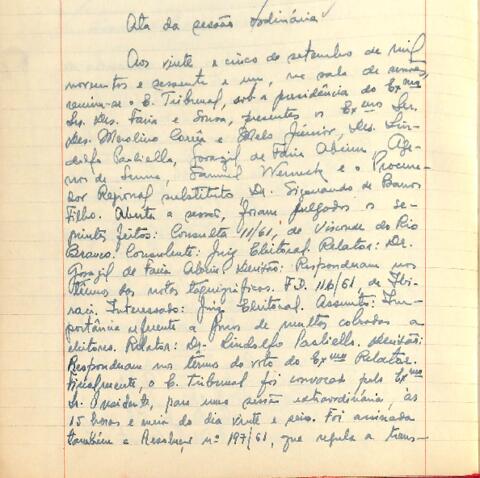 Ata da sessão ordinária
Aos vinte e cinco de setembro de mil
novecentos e sessenta e um, na sala de sessões,
reuniu-se o E. Tribunal, sob a presidência do Exmo
Sr. Des. Faria e Sousa, presentes os Exmos Srs.
Des. Merolino Corrêa e Melo Júnior, Drs. Lin-
dolfo Paoliello, Gorazil de Faria Alvim, Age-
nor de Senna, Samuel Werneck e o Procura-
dor Regional substituto Dr. Sigenando de Barros
Filho. Aberta a sessão, foram julgados os se-
guintes feitos: Consulta 11/61, de Visconde do Rio
Branco. Consulente: Juiz Eleitoral. Relator: Dr.
Gorazil de Faria Alvim. Decisão: Responderam nos
têrmos das notas taquigráficas. F.D. 116/61, de Ibi-
raci. Interessado: Juiz Eleitoral. Assunto: Im-
portância referente a de multas cobradas a
eleitores. Relator: Dr. Lindolfo Paoliello. Decisão:
Responderam nos têrmos do voto do Exmo Relator.
Finalmente, o E. Tribunal foi convocado pelo Exmo
Sr. Presidente, para uma sessão extraordinária, às
15 horas e meia do dia vinte e seis. Foi assinada
também a Resolução nº 197/61, que regula a trans-